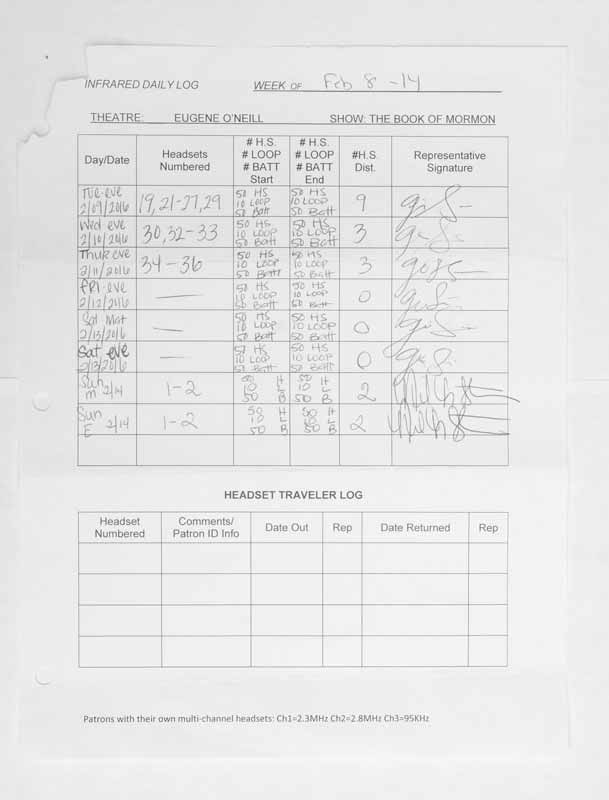 INFRARED DAILY LOG WEEK OF Feb 8 -14
THEATRE: EUGENE O'NEILL SHOW: THE BOOK OF MORMON
Day/Date Headsets Numbered # H.S. # LOOP # BATT Start # H.S. # LOOP # BATT End #H.S. Dist. Representative Signature
Tue eve 2/09/2016 19, 21-27, 29 50 HS 10 LOOP 50 Batt 50 HS 10 LOOP 50 Batt 9
Wed eve 2/10/2016 30, 32-33 50 HS 10 LOOP 50 Batt 50 HS 10 LOOP 50 Batt 3
Thur eve 2/11/2016 34-36 50 HS 10 LOOP 50 Batt 50 HS 10 LOOP 50 Batt 3
FRI eve 2/12/2016 — 50 HS 10 LOOP 50 Batt 50 HS 10 LOOP 50 Batt 0
Sat Mat 2/13/2016 — 50 HS 10 LOOP 50 Batt 50 HS 10 LOOP 50 Batt 0
Sat eve 2/13/2016 — HS 10 LOOP 50 Batt 50 HS 10 LOOP 50 Batt 0
Sun m 2/14 1-2 50 H 10 L 50 B 50 H 10 L 50 B 2
Sun E 2/14 1-2 50 H 10 L 50 B 50 H 10 L 50 B 2
HEADSET TRAVELER LOG
Headset Numbered Comments/ Patron ID Info Date Out Rep Date Returned Rep
Patrons with their own multi-channel headsets: Ch1=2.3MHz Ch2=2.8MHz Ch3=95KHz